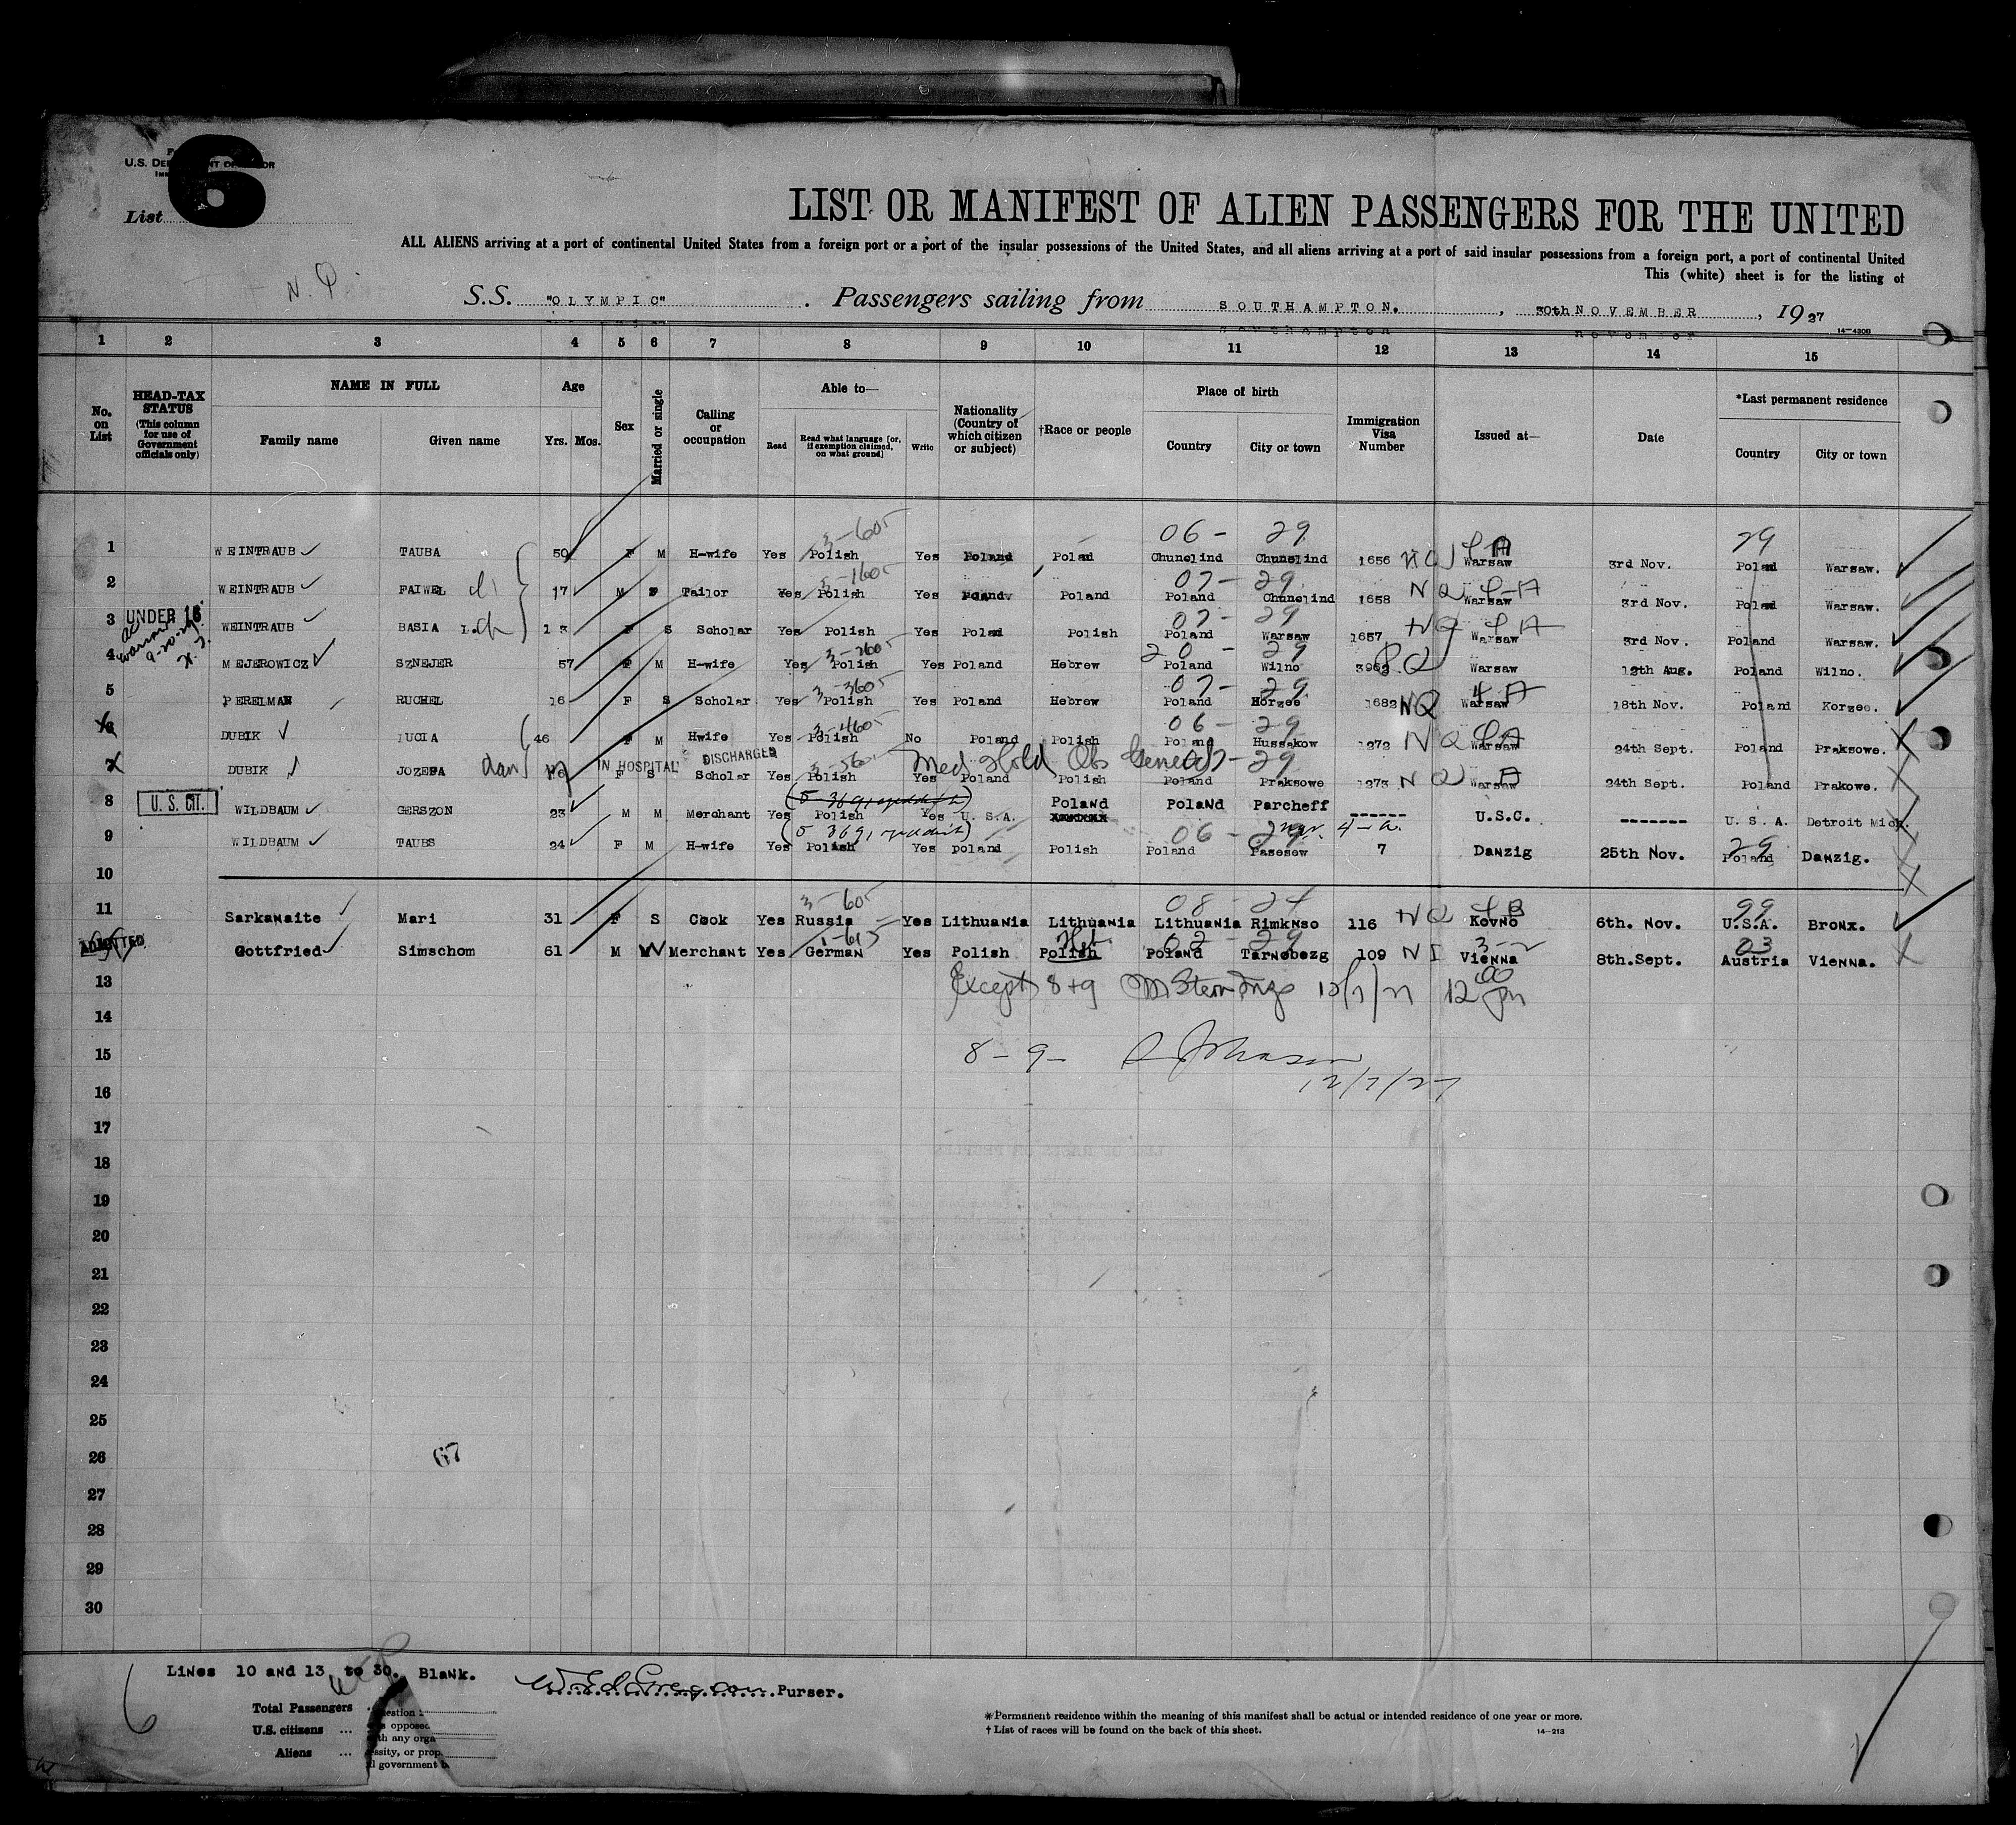 6
U.S. DE
List
LIST OR MANIFEST OF ALIEN PASSENGERS FOR THE UNITED
ALL ALIENS arriving at a port of continental United States from a foreign port or a port of the insular possessions of the United States, and all aliens arriving at a port of said insular possessions from a foreign port, a port of continental United
This (white) sheet is for the listing of
S.S. "OLYMPIC" . Passengers sailing from SOUTHAMPTON. , 30th NOVEMBER , 1927
14-430B
1 2 3 4 5 6 7 8 9 10 11 12 13 14 15
No. on List HEAD-TAX STATUS (This column for use of Government officials only) NAME IN FULL Family name Given name Age Yrs. Mos. Sex Married or single Calling or occupation Able to— Read Read what language [or, if exemption claimed, on what ground] Write Nationality (Country of which citizen or subject) †Race or people Place of birth Country City or town Immigration Visa Number Issued at— Date *Last permanent residence Country City or town
3-605 06- 29 29
1 WEINTRAUB TAUBA 50 F M H-wife Yes Polish Yes Poland Polad Chunelind Chunelind 1656 NQ 4A Warsaw 3rd Nov. Poland Warsaw.
3-1605 07- 29
2 WEINTRAUB FAIWEL 17 M S Tailor Yes Polish Yes Poland Poland Poland Chunelind 1658 NQ 4-A Warsaw 3rd Nov. Poland Warsaw.
UNDER 16 07- 29
3 WEINTRAUB BASIA 13 F S Scholar Yes Polish Yes Polad Polish Poland Warsaw 1657 NQ 4A Warsaw 3rd Nov. Poland Warsaw.
3-2605 20- 29
4 MEJEROWICZ SZNEJER 57 F M H-wife Yes Polish Yes Poland Hebrew Poland Wilno Warsaw 12th Aug. Poland Wilno.
3-3605 07- 29
5 PERELMAN RUCHEL 16 F S Scholar Yes Polish Yes Poland Hebrew Poland Horzee 1682 NQ 4A Warsaw 18th Nov. Poland Korzee.
3-4605 06- 29
6 DUBIK LUCIA 46 F M Hwife Yes Polish No Poland Polish Poland Hussakow 1272 NQ 4A Warsaw 24th Sept. Poland Praksowe.
IN HOSPITAL DISCHARGED Med Hold Obs General 29
7 DUBIK JOZEFA dau F S Scholar Yes Polish Yes Poland Polish Poland Praksowe 1273 NQ Warsaw 24th Sept. Poland Prakowe.
8 U.S. CIT. WILDBAUM GERSZON 23 M M Merchant Yes Polish Yes U.S.A. Poland Poland Parcheff ------ U.S.C. ------- U.S.A. Detroit Mich.
06- 29 4-a. 29
9 WILDBAUM TAUBS 24 F M H-wife Yes Polish Yes poland Polish Poland Pasesew 7 Danzig 25th Nov. Poland Danzig.
10
3-605 08- 24 99
11 Sarkanaite Mari 31 F S Cook Yes Russia Yes Lithuania Lithuania Lithuania Rimknso 116 NQ 4B Kovno 6th. Nov. U.S.A. Bronx.
ADMITTED Heb. 02- 29 3-2 03
Gottfried Simschom 61 M W Merchant Yes German Yes Polish Polish Poland Tarnobezg 109 NI Vienna 8th.Sept. Austria Vienna.
13 Except 8+9 12/7/27 12 00 pm
14
15 8-9- Johnson
16 12/7/27
17
18
19
20
21
22
23
24
25
26 67
27
28
29
30
Lines 10 and 13 to 30. Blank.
Purser.
Total Passengers
U.S. citizens ...
Aliens ...
*Permanent residence within the meaning of this manifest shall be actual or intended residence of one year or more.
† List of races will be found on the back of this sheet. 14-213